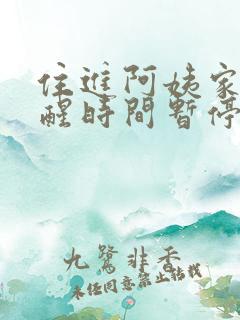 住進阿姨家
醒時間暫停
九鷺非香
未经同意禁止转载